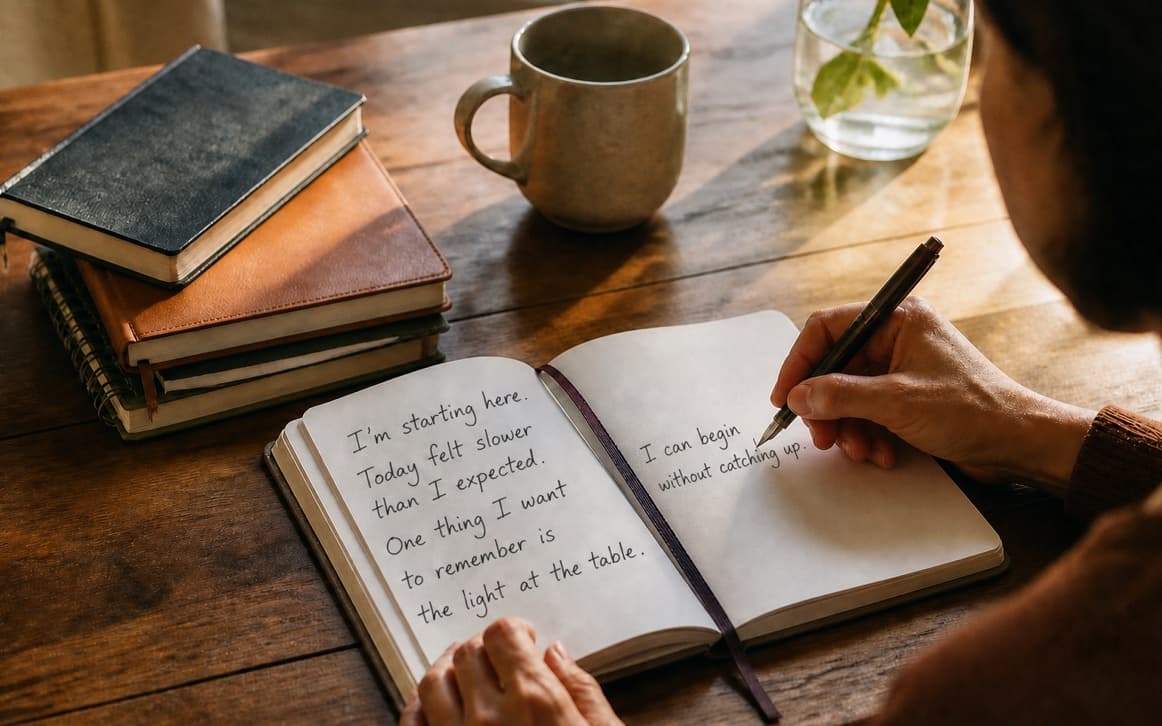 I'm starting here.
Today felt slower
than I expected.
One thing I want
to remember is
the light at the table.
I can begin
without catching up.